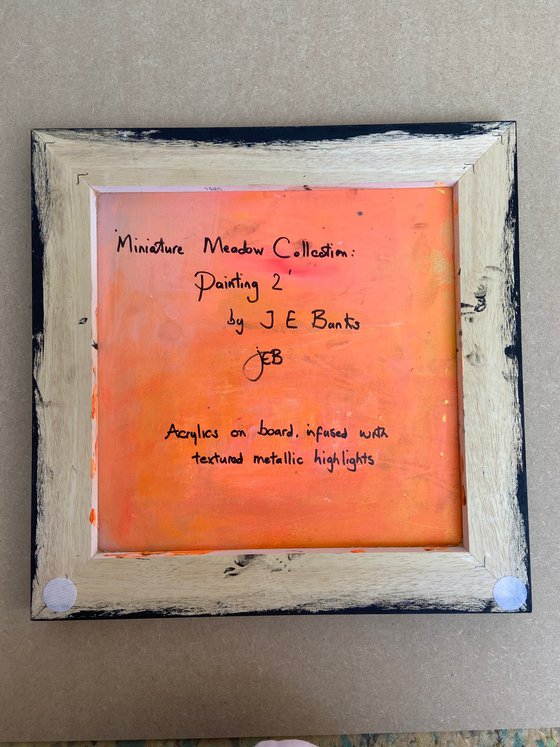 'Miniature Meadow Collection:
Painting 2'
by J E Banks
JEB
Acrylics on board, infused with
textured metallic highlights